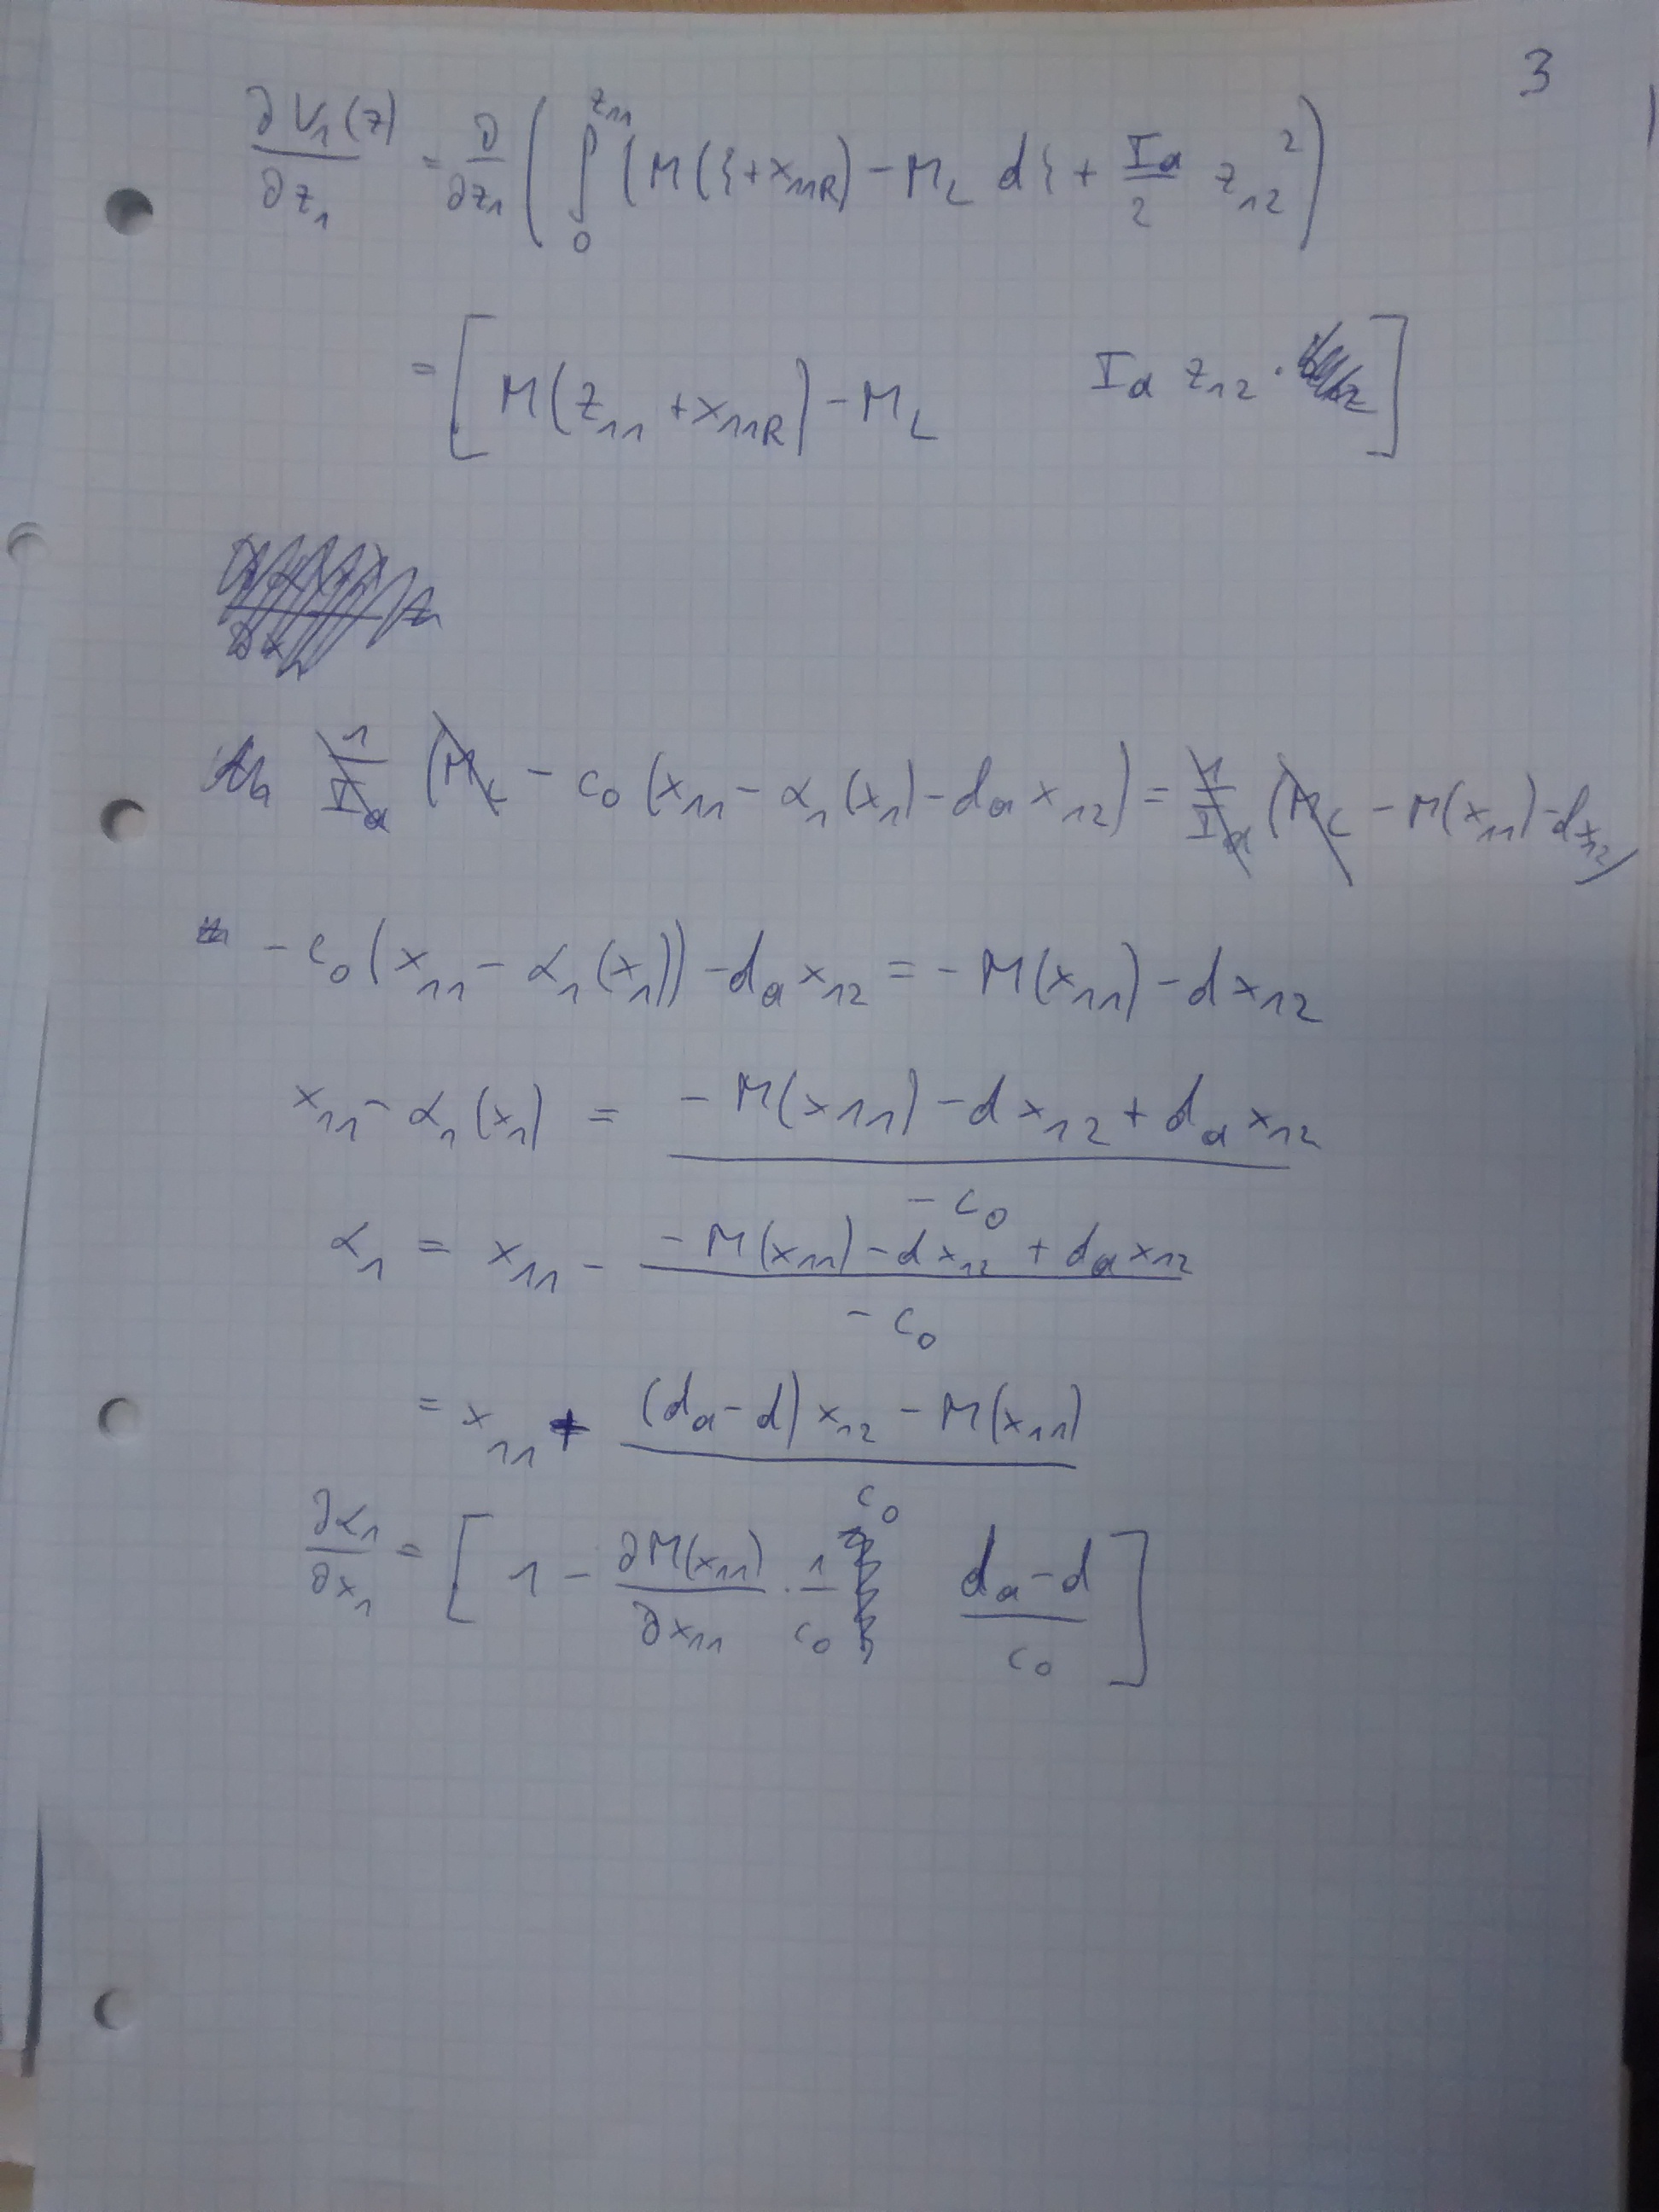 3
∂V₁(z)/∂z₁ = ∂/∂z₁ ( ∫₀^z₁₁ (M(ξ+x₁₁R) - M_L dξ + I_a/2 z₁₂² )
= [ M(z₁₁ + x₁₁R) - M_L   I_a z₁₂ · ]
1/I_a (M_L - c₀ (x₁₁ - α₁(x₁) - d_a x₁₂) = 1/I_a (M_L - M(x₁₁) - d x₁₂)
- c₀ (x₁₁ - α₁(x₁)) - d_a x₁₂ = - M(x₁₁) - d x₁₂
x₁₁ - α₁(x₁) = (- M(x₁₁) - d x₁₂ + d_a x₁₂)/(- c₀)
α₁ = x₁₁ - (- M(x₁₁) - d x₁₂ + d_a x₁₂)/(- c₀)
= x₁₁ + ((d_a - d) x₁₂ - M(x₁₁))/c₀
∂α₁/∂x₁ = [ 1 - ∂M(x₁₁)/∂x₁₁ · 1/c₀   (d_a - d)/c₀ ]